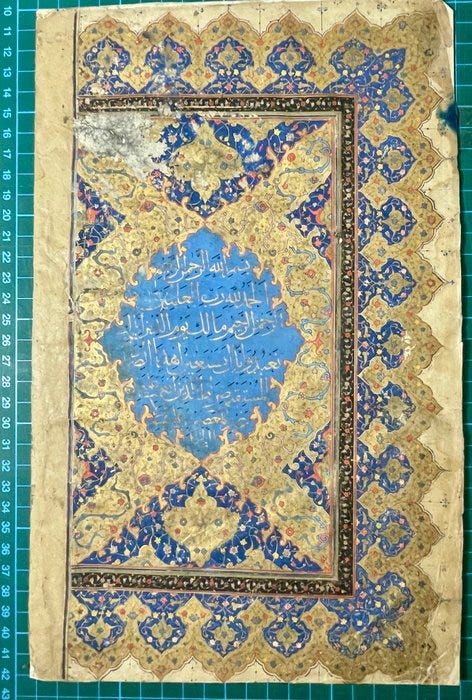 بسم الله الرحمن
الحمد لله رب العلمين
الرحمن الرحيم مالك يوم الدين
نعبد واياك نستعين اهدنا
المستقيم صراط الذين
10
11
12
13
14
15
16
17
18
19
20
21
22
23
24
25
26
27
28
29
30
31
32
33
34
35
36
37
38
39
40
41
42
43